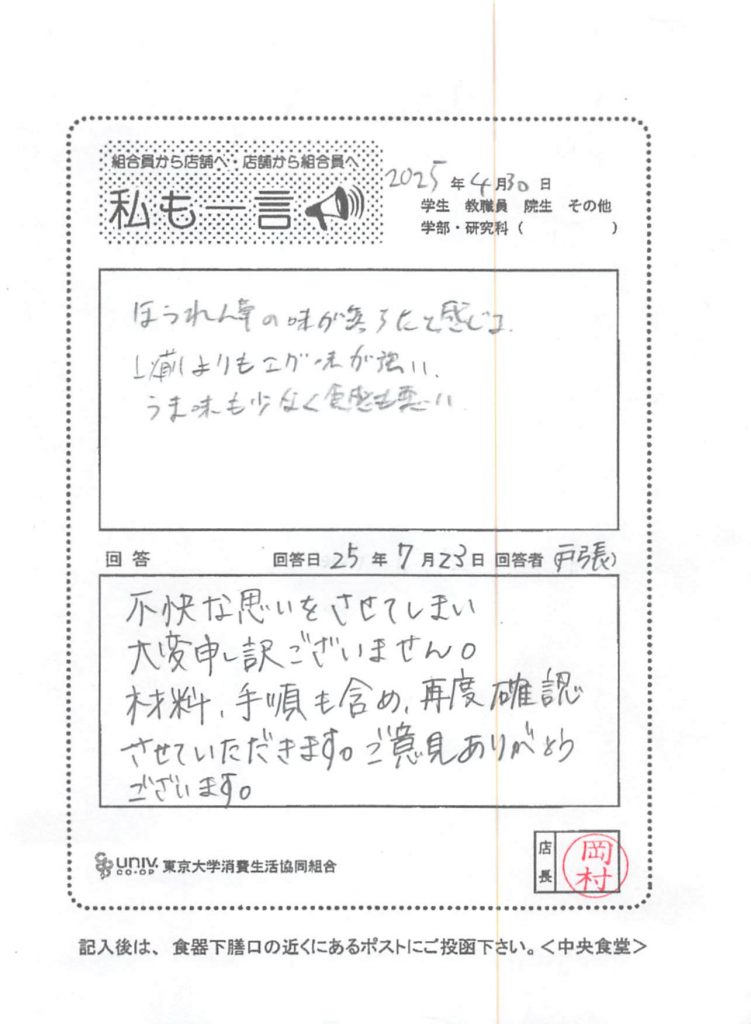 組合員から店舗へ・店舗から組合員へ
私も一言
2025年4月30日
学生 教職員 院生 その他
学部・研究科( )
ほうれん草の味が落ちたと感じます。
以前よりもエグ味が強い。
うま味も少なく食感も悪い
回答 回答日 25年7月23日 回答者(戸張)
不快な思いをさせてしまい
大変申し訳ございません。
材料、手順も含め、再度確認
させていただきます。ご意見ありがとう
ございます。
UNIV. CO-OP 東京大学消費生活協同組合
店長 岡村
記入後は、食器下膳口の近くにあるポストにご投函下さい。<中央食堂>